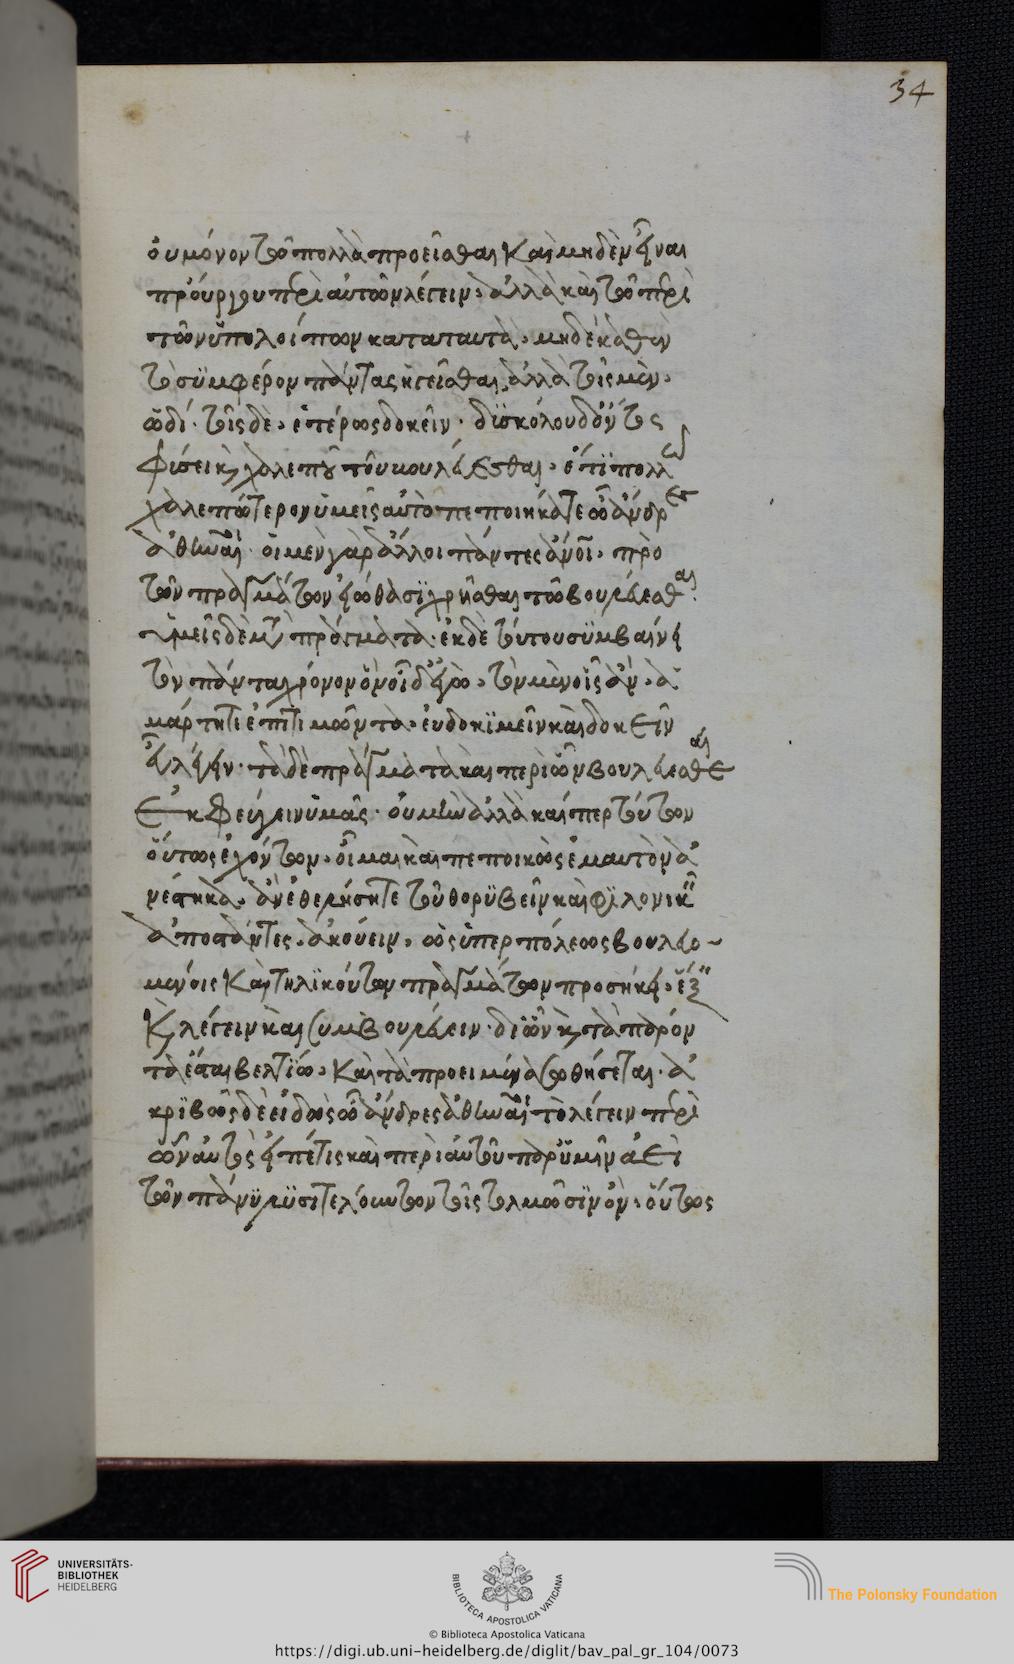 34
οὐ μόνον τῶ πολλὰ προεῖσθαι καὶ μηδὲν εἶναι
προύργου περὶ αὐτῶν λέγειν, ἀλλὰ καὶ τῶ περὶ
τῶν ὑπολοίπων κατὰ ταυτὰ, μηδὲ καθ' ἓν
τὸ συμφέρον πάντας ἡγεῖσθαι, ἀλλὰ τοῖς μὲν,
ὡδί· τοῖς δὲ, ἑτέρως δοκεῖν· δυσκόλου δ' ὄντος
φύσει καὶ χαλεποῦ τοῦ βουλεύεσθαι, ἔτι πολλῶ
χαλεπώτερον ὑμεῖς αὐτὸ πεποιήκατε ὦ ἄνδρες
ἀθηναῖοι· οἱ μὲν γὰρ ἄλλοι πάντες ἄνοι, πρὸ
τῶν πραγμάτων εἰώθασι χρῆσθαι τῶ βουλεύεσθαι·
ὑμεῖς δὲ μετὰ τὰ πράγματα· ἐκ δὲ τούτου συμβαίνει
τὸν πάντα χρόνον ὃν οἶδ' ἐγὼ, τὸν μὲν οἷς ἂν, ἁ
μάρτητε ἐπιτιμῶντα, εὐδοκιμεῖν καὶ δοκεῖν
εὖ λέγειν· τὰ δὲ πράγματα καὶ περὶ ὧν βουλεύεσθαι
ἐκφεύγειν ὑμᾶς· οὐ μὴν ἀλλὰ καίπερ τούτων
οὕτως ἐχόντων, οἶμαι καὶ πεποικὼς ἐμαυτὸν ἀ
νέστηκα, ἂν ἐθελήσητε τοῦ θορυβεῖν καὶ φιλονικεῖν
ἀποστάντες, ἀκούειν, ὡς ὑπὲρ πόλεως βουλευο-
μένοις καὶ τηλικούτων πραγμάτων προσήκει, ἕξειν
καὶ λέγειν καὶ συμβουλεύειν· δι' ὧν καὶ τὰ παρόν
τα ἔσται βελτίω, καὶ τὰ προειμένα σωθήσεται· ἀ
κριβῶς δὲ εἰδὼς ὦ ἄνδρες ἀθηναῖοι τὸ λέγειν περὶ
ὧν αὐτὸς εἶπέ τις καὶ περὶ αὑτοῦ παρ' ὑμῖν ἀεὶ
τῶν πάνυ λυσιτελούντων τοῖς τολμῶσιν ὂν, οὕτως
UNIVERSITÄTS-
BIBLIOTHEK
HEIDELBERG
BIBLIOTECA APOSTOLICA VATICANA
The Polonsky Foundation
© Biblioteca Apostolica Vaticana
https://digi.ub.uni-heidelberg.de/diglit/bav_pal_gr_104/0073